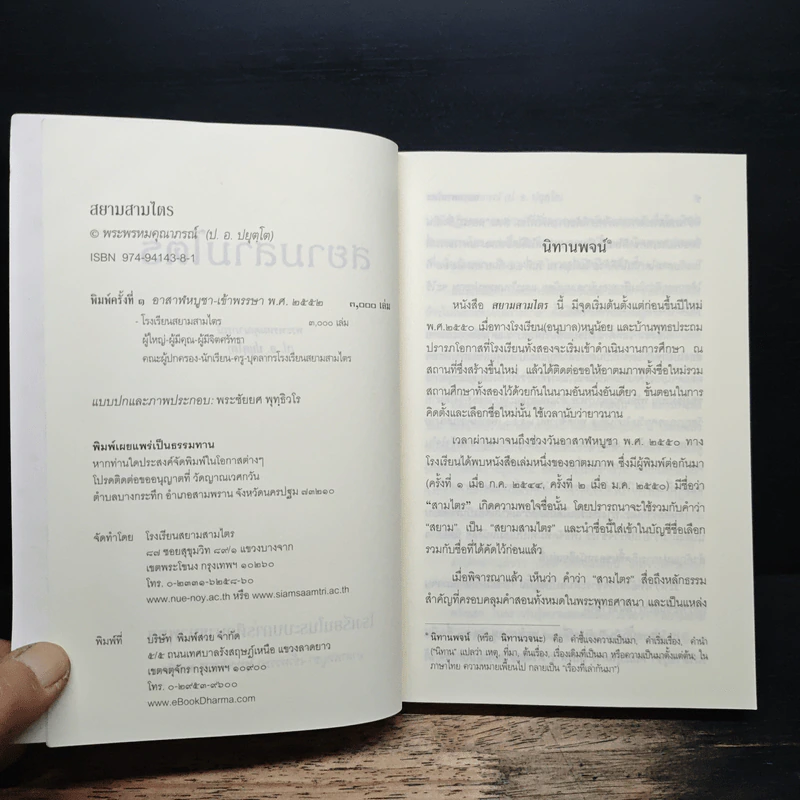 สยามสามไตร
© พระพรหมคุณาภรณ์ (ป. อ. ปยุตฺโต)
ISBN 974-94143-8-1
พิมพ์ครั้งที่ ๑ อาสาฬหบูชา-เข้าพรรษา พ.ศ. ๒๕๕๒ ๓,๐๐๐ เล่ม
- โรงเรียนสยามสามไตร ๓,๐๐๐ เล่ม
ผู้ใหญ่-ผู้มีคุณ-ผู้มีจิตศรัทธา
คณะผู้ปกครอง-นักเรียน-ครู-บุคลากรโรงเรียนสยามสามไตร
แบบปกและภาพประกอบ: พระชัยยศ พุทฺธิวโร
พิมพ์เผยแพร่เป็นธรรมทาน
หากท่านใดประสงค์จัดพิมพ์ในโอกาสต่างๆ
โปรดติดต่อขออนุญาตที่ วัดญาณเวศกวัน
ตำบลบางกระทึก อำเภอสามพราน จังหวัดนครปฐม ๗๓๒๑๐
จัดทำโดย โรงเรียนสยามสามไตร
๘๗ ซอยสุขุมวิท ๘๙/๑ แขวงบางจาก
เขตพระโขนง กรุงเทพฯ ๑๐๒๖๐
โทร. ๐-๒๓๓๑-๖๒๕๘-๖๐
www.nue-noy.ac.th หรือ www.siamsaamtri.ac.th
พิมพ์ที่ บริษัท พิมพ์สวย จำกัด
๕/๕ ถนนเทศบาลรังสฤษฎ์เหนือ แขวงลาดยาว
เขตจตุจักร กรุงเทพฯ ๑๐๙๐๐
โทร. ๐-๒๙๕๓-๙๖๐๐
www.eBookDharma.com
นิทานพจน์*
หนังสือ สยามสามไตร นี้ มีจุดเริ่มต้นตั้งแต่ก่อนขึ้นปีใหม่
พ.ศ.๒๕๕๐ เมื่อทางโรงเรียน(อนุบาล)หนูน้อย และบ้านพุทธประถม
ปรารภโอกาสที่โรงเรียนทั้งสองจะเริ่มเข้าดำเนินงานการศึกษา ณ
สถานที่ซึ่งสร้างขึ้นใหม่ แล้วได้ติดต่อขอให้อาตมภาพตั้งชื่อใหม่รวม
สถานศึกษาทั้งสองไว้ด้วยกันในนามอันหนึ่งอันเดียว ขั้นตอนในการ
คิดตั้งและเลือกชื่อใหม่นั้น ใช้เวลานับว่ายาวนาน
เวลาผ่านมาจนถึงช่วงวันอาสาฬหบูชา พ.ศ. ๒๕๕๐ ทาง
โรงเรียนได้พบหนังสือเล่มหนึ่งของอาตมภาพ ซึ่งมีผู้พิมพ์ต่อกันมา
(ครั้งที่ ๑ เมื่อ ก.ค. ๒๕๔๔, ครั้งที่ ๒ เมื่อ ม.ค. ๒๕๕๐) มีชื่อว่า
“สามไตร” เกิดความพอใจชื่อนั้น โดยปรารถนาจะใช้รวมกับคำว่า
“สยาม” เป็น “สยามสามไตร” และนำชื่อนี้ใส่เข้าในบัญชีชื่อเลือก
รวมกับชื่อที่ได้คัดไว้ก่อนแล้ว
เมื่อพิจารณาแล้ว เห็นว่า คำว่า “สามไตร” สื่อถึงหลักธรรม
สำคัญที่ครอบคลุมคำสอนทั้งหมดในพระพุทธศาสนา และเป็นแหล่ง
* นิทานพจน์ (หรือ นิทานวจนะ) คือ คำชี้แจงความเป็นมา, คำเริ่มเรื่อง, คำนำ
(“นิทาน” แปลว่า เหตุ, ที่มา, ต้นเรื่อง, เรื่องเดิมที่เป็นมา หรือความเป็นมาตั้งแต่ต้น; ใน
ภาษาไทย ความหมายเพี้ยนไป กลายเป็น “เรื่องที่เล่ากันมา”)